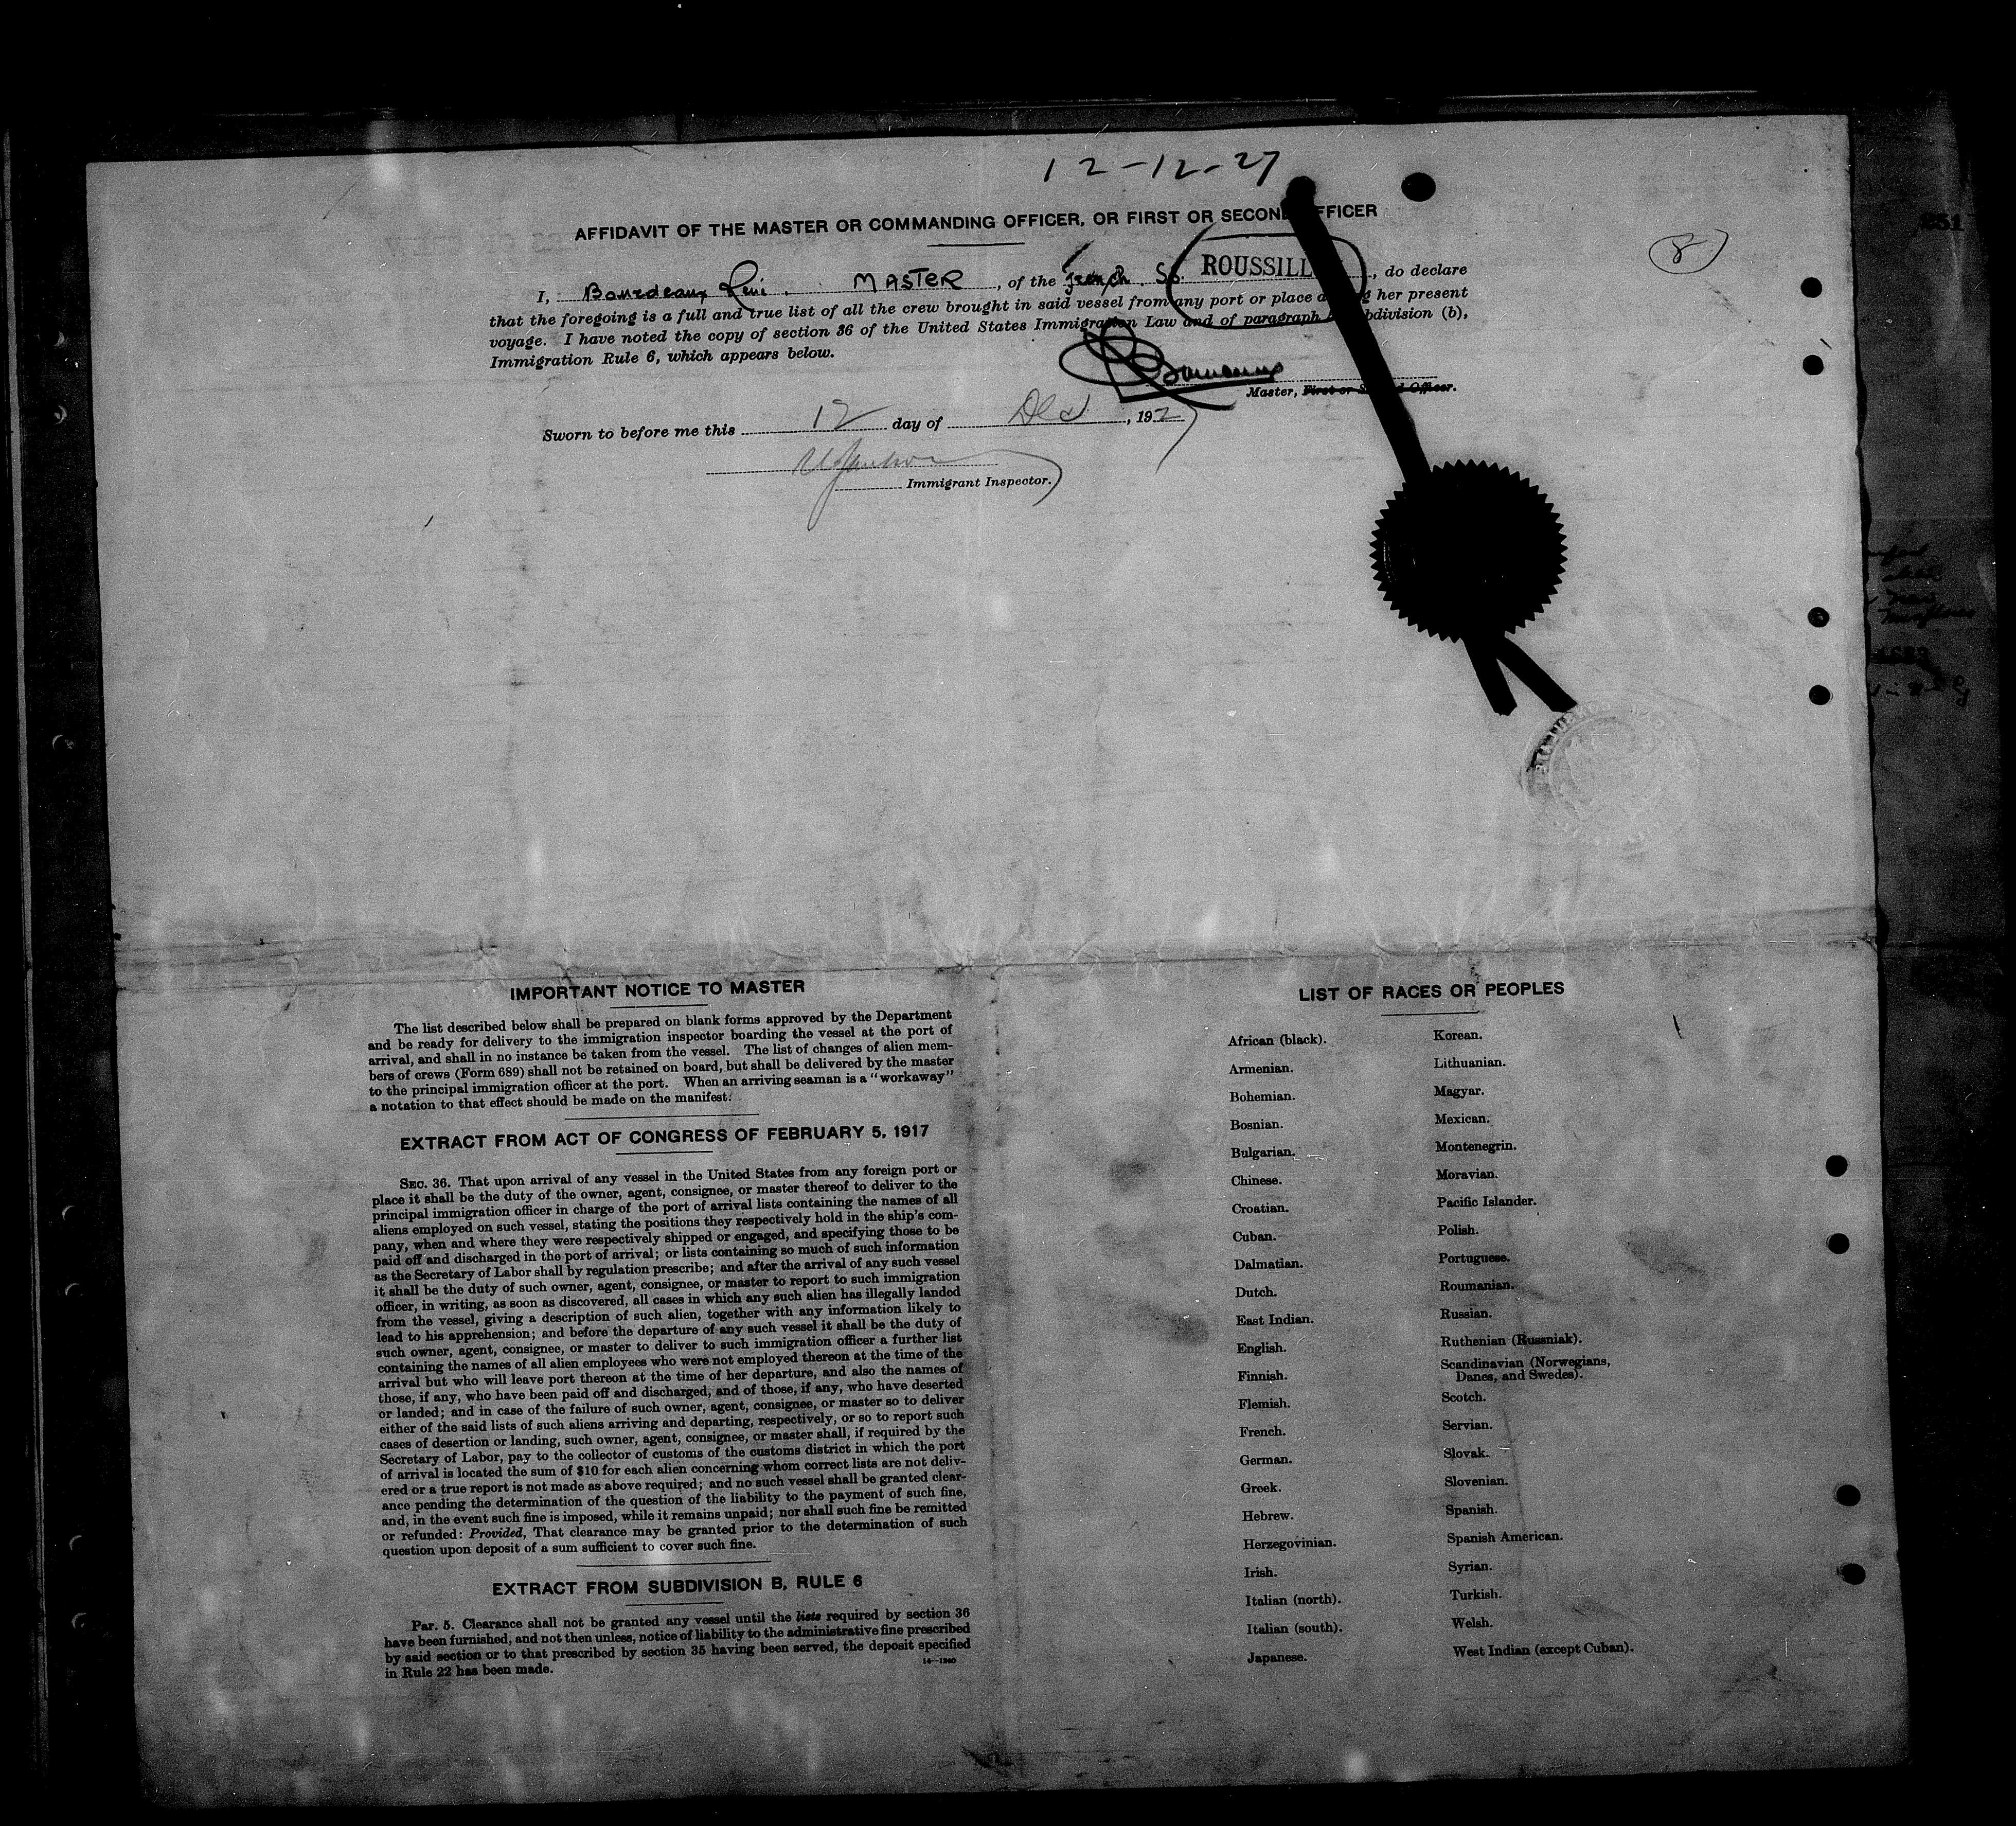 12-12-27
AFFIDAVIT OF THE MASTER OR COMMANDING OFFICER, OR FIRST OR SECOND OFFICER
8
I, Bourdeaux MASTER, of the French SS. ROUSSILL, do declare
that the foregoing is a full and true list of all the crew brought in said vessel from any port or place during her present
voyage. I have noted the copy of section 36 of the United States Immigration Law and of paragraph subdivision (b),
Immigration Rule 6, which appears below.
Master, First or Second Officer.
Sworn to before me this 12 day of Dec, 1927
Immigrant Inspector.
IMPORTANT NOTICE TO MASTER
The list described below shall be prepared on blank forms approved by the Department
and be ready for delivery to the immigration inspector boarding the vessel at the port of
arrival, and shall in no instance be taken from the vessel. The list of changes of alien mem-
bers of crews (Form 689) shall not be retained on board, but shall be delivered by the master
to the principal immigration officer at the port. When an arriving seaman is a "workaway"
a notation to that effect should be made on the manifest.
EXTRACT FROM ACT OF CONGRESS OF FEBRUARY 5, 1917
SEC. 36. That upon arrival of any vessel in the United States from any foreign port or
place it shall be the duty of the owner, agent, consignee, or master thereof to deliver to the
principal immigration officer in charge of the port of arrival lists containing the names of all
aliens employed on such vessel, stating the positions they respectively hold in the ship's com-
pany, when and where they were respectively shipped or engaged, and specifying those to be
paid off and discharged in the port of arrival; or lists containing so much of such information
as the Secretary of Labor shall by regulation prescribe; and after the arrival of any such vessel
it shall be the duty of such owner, agent, consignee, or master to report to such immigration
officer, in writing, as soon as discovered, all cases in which any such alien has illegally landed
from the vessel, giving a description of such alien, together with any information likely to
lead to his apprehension; and before the departure of any such vessel it shall be the duty of
such owner, agent, consignee, or master to deliver to such immigration officer a further list
containing the names of all alien employees who were not employed thereon at the time of the
arrival but who will leave port thereon at the time of her departure, and also the names of
those, if any, who have been paid off and discharged, and of those, if any, who have deserted
or landed; and in case of the failure of such owner, agent, consignee, or master so to deliver
either of the said lists of such aliens arriving and departing, respectively, or so to report such
cases of desertion or landing, such owner, agent, consignee, or master shall, if required by the
Secretary of Labor, pay to the collector of customs of the customs district in which the port
of arrival is located the sum of $10 for each alien concerning whom correct lists are not deliv-
ered or a true report is not made as above required; and no such vessel shall be granted clear-
ance pending the determination of the question of the liability to the payment of such fine,
and, in the event such fine is imposed, while it remains unpaid; nor shall such fine be remitted
or refunded: Provided, That clearance may be granted prior to the determination of such
question upon deposit of a sum sufficient to cover such fine.
EXTRACT FROM SUBDIVISION B, RULE 6
Par. 5. Clearance shall not be granted any vessel until the lists required by section 36
have been furnished, and not then unless, notice of liability to the administrative fine prescribed
by said section or to that prescribed by section 35 having been served, the deposit specified
in Rule 22 has been made.
14—1240
LIST OF RACES OR PEOPLES
African (black).
Armenian.
Bohemian.
Bosnian.
Bulgarian.
Chinese.
Croatian.
Cuban.
Dalmatian.
Dutch.
East Indian.
English.
Finnish.
Flemish.
French.
German.
Greek.
Hebrew.
Herzegovinian.
Irish.
Italian (north).
Italian (south).
Japanese.
Korean.
Lithuanian.
Magyar.
Mexican.
Montenegrin.
Moravian.
Pacific Islander.
Polish.
Portuguese.
Roumanian.
Russian.
Ruthenian (Russniak).
Scandinavian (Norwegians,
Danes, and Swedes).
Scotch.
Servian.
Slovak.
Slovenian.
Spanish.
Spanish American.
Syrian.
Turkish.
Welsh.
West Indian (except Cuban).
231